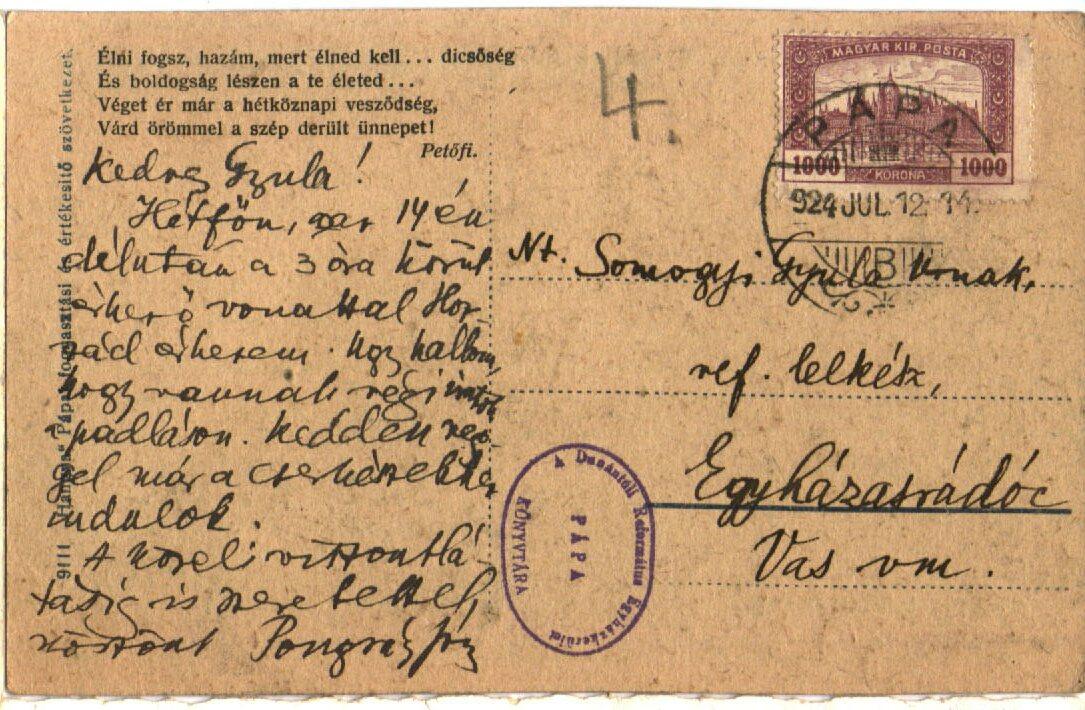 Élni fogsz, hazám, mert élned kell... dicsőség
És boldogság lészen a te életed...
Véget ér már a hétköznapi vesződség,
Várd örömmel a szép derült ünnepet!
Petőfi.
Kedves Gyula!
Hétfőn, 14 én
délután a 3 óra körül
érkező vonattal
érkezem. Úgy hallom,
hogy vannak régi
padláson. Kedden reg-
gel már a cserkészekkel
indulok.
A közeli viszontlá-
tásig is szeretettel
köszönt Pongrácz
9111 "Hangya" Pápai fogyasztási és értékesitő szövetkezet.
4.
MAGYAR KIR. POSTA
1000 1000
KORONA
PÁPA
924 JUL 12. 14.
B
Nt. Somogyi Gyula Urnak,
ref. lelkész,
Egyházasrádóc
Vas vm.
A Dunántúli Református Egyházkerület
PÁPA
KÖNYVTÁRA